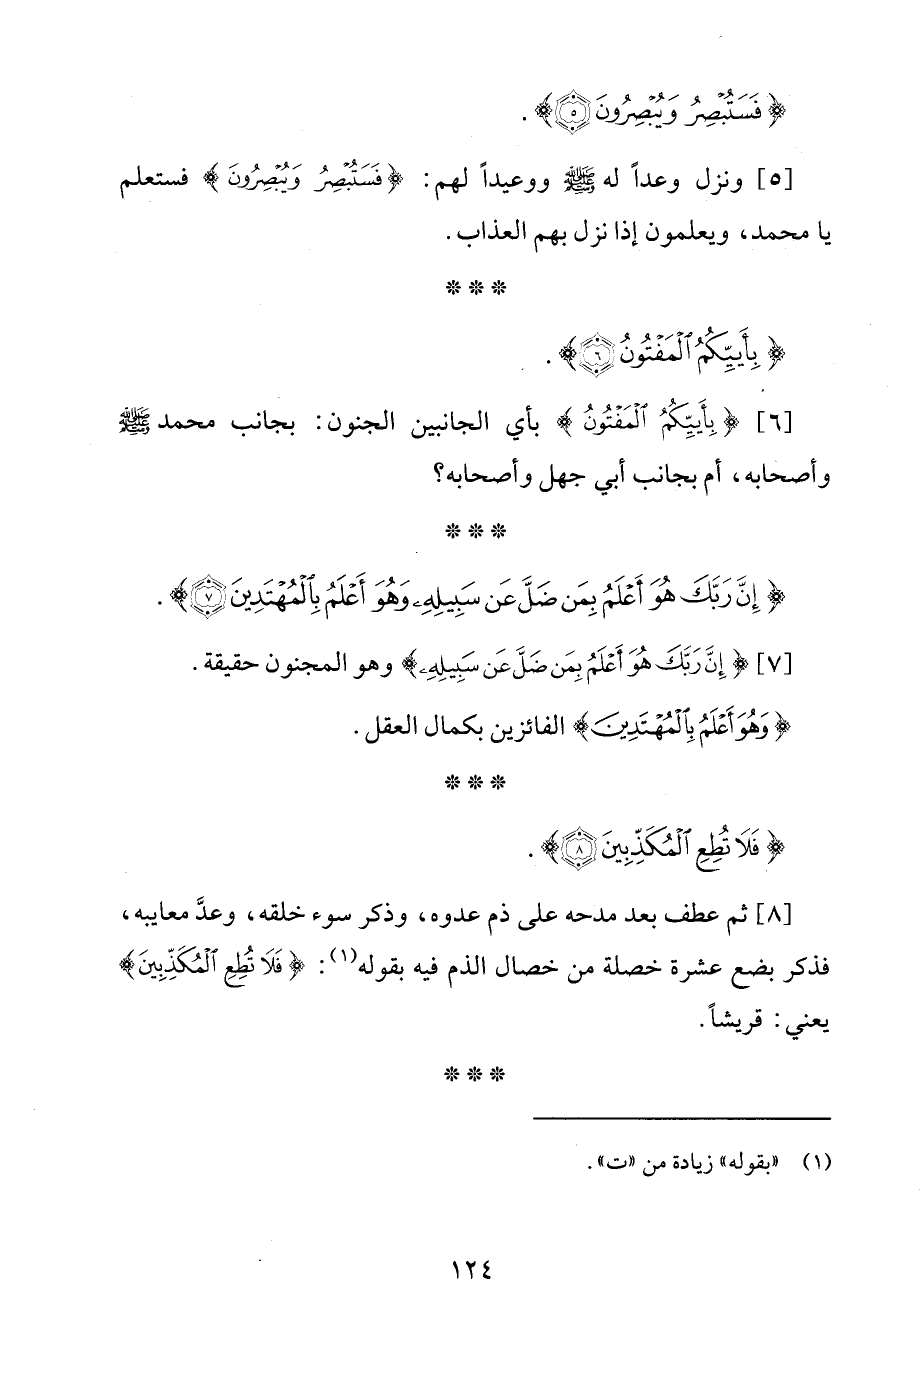 ﴿ فَسَتُبْصِرُ وَيُبْصِرُونَ ٥ ﴾ .
[٥] ونزل وعداً له ﷺ ووعيداً لهم: ﴿ فَسَتُبْصِرُ وَيُبْصِرُونَ ﴾ فستعلم
يا محمد، ويعلمون إذا نزل بهم العذاب.
* * *
﴿ بِأَييِّكُمُ ٱلْمَفْتُونُ ٦ ﴾ .
[٦] ﴿ بِأَييِّكُمُ ٱلْمَفْتُونُ ﴾ بأي الجانبين الجنون: بجانب محمد ﷺ
وأصحابه، أم بجانب أبي جهل وأصحابه؟
* * *
﴿ إِنَّ رَبَّكَ هُوَ أَعْلَمُ بِمَن ضَلَّ عَن سَبِيلِهِۦ وَهُوَ أَعْلَمُ بِٱلْمُهْتَدِينَ ٧ ﴾ .
[٧] ﴿ إِنَّ رَبَّكَ هُوَ أَعْلَمُ بِمَن ضَلَّ عَن سَبِيلِهِۦ ﴾ وهو المجنون حقيقة.
﴿ وَهُوَ أَعْلَمُ بِٱلْمُهْتَدِينَ ﴾ الفائزين بكمال العقل.
* * *
﴿ فَلَا تُطِعِ ٱلْمُكَذِّبِينَ ٨ ﴾ .
[٨] ثم عطف بعد مدحه على ذم عدوه، وذكر سوء خلقه، وعدَّ معايبه،
فذكر بضع عشرة خصلة من خصال الذم فيه بقوله(١): ﴿ فَلَا تُطِعِ ٱلْمُكَذِّبِينَ ﴾
يعني: قريشاً.
* * *
(١) «بقوله» زيادة من «ت».
١٢٤